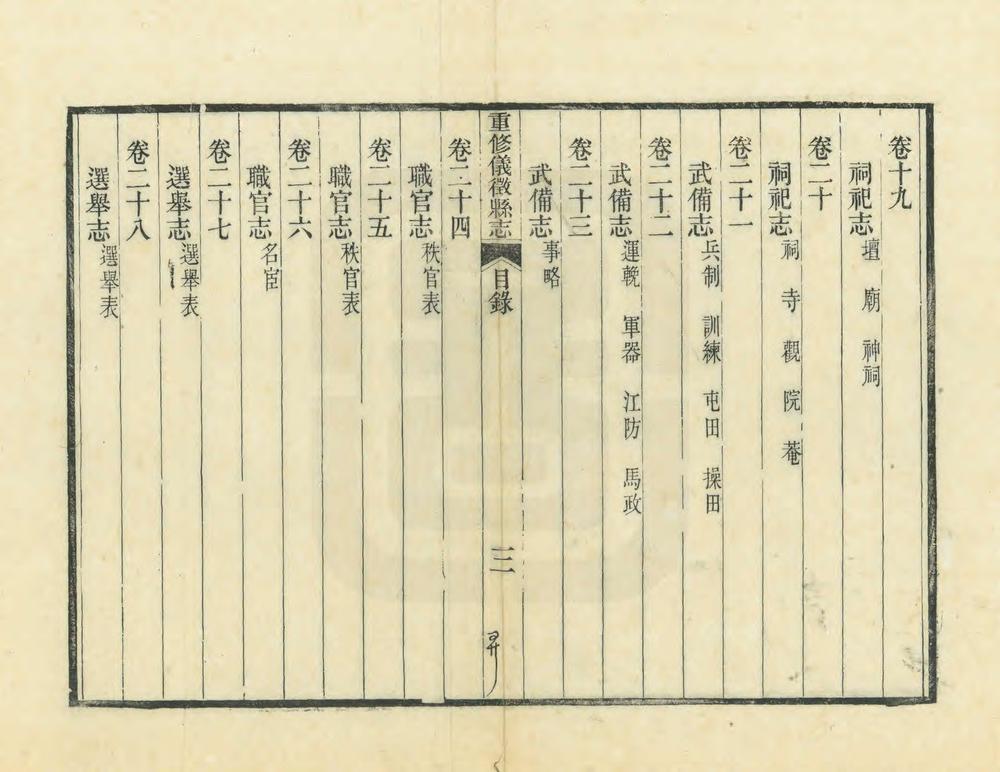 卷十九
祠祀志 壇 廟 神祠
卷二十
祠祀志 祠 寺 觀 院 菴
卷二十一
武備志 兵制 訓練 屯田 操田
卷二十二
武備志 運輓 軍器 江防 馬政
卷二十三
武備志 事略
重修儀徵縣志 目錄 三
卷二十四
職官志 秩官表
卷二十五
職官志 秩官表
卷二十六
職官志 名宦
卷二十七
選舉志 選舉表
卷二十八
選舉志 選舉表